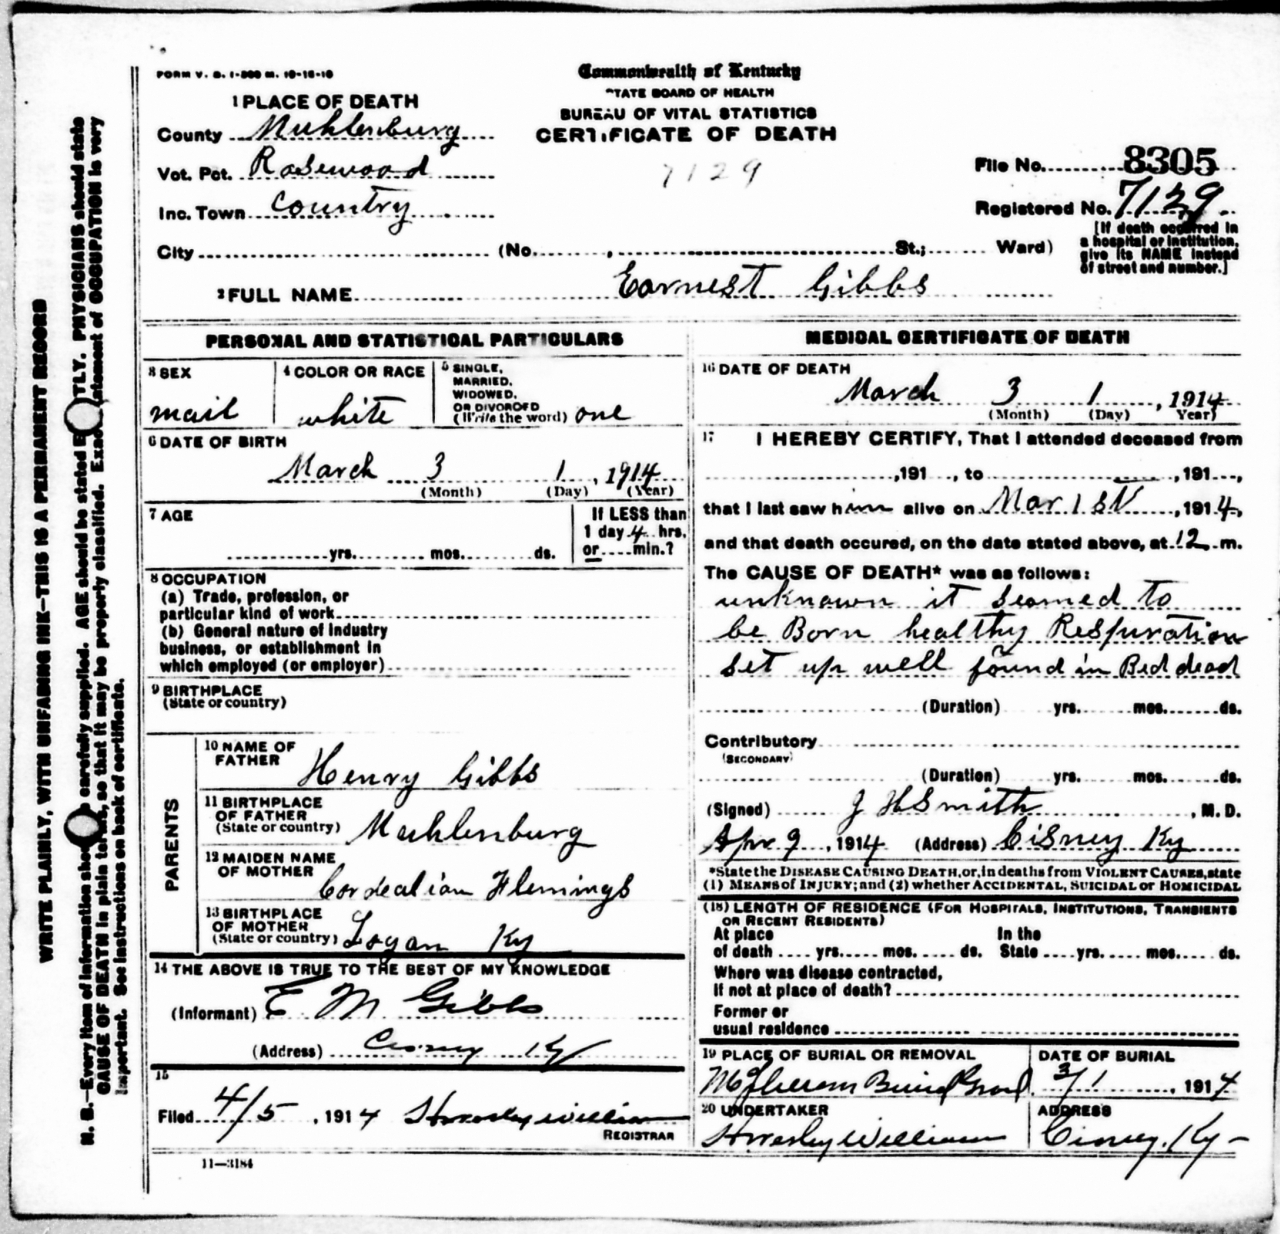 FORM V. S. 1-300 m. 10-16-10
Commonwealth of Kentucky
STATE BOARD OF HEALTH
BUREAU OF VITAL STATISTICS
CERTIFICATE OF DEATH
7129
1 PLACE OF DEATH
County Muhlenburg
Vot. Pct. Rosewood
Inc. Town Country
City (No. , St.; Ward)
File No. 8305
Registered No. 7129
[If death occurred in
a hospital or institution,
give its NAME instead
of street and number.]
2 FULL NAME Earnest Gibbs
PERSONAL AND STATISTICAL PARTICULARS
3 SEX
mail
4 COLOR OR RACE
white
5 SINGLE,
MARRIED,
WIDOWED,
OR DIVORCED
(Write the word) one
6 DATE OF BIRTH
March 3 1, 1914
(Month) (Day) (Year)
7 AGE
yrs. mos. ds.
If LESS than
1 day 4 hrs.
or min.?
8 OCCUPATION
(a) Trade, profession, or
particular kind of work
(b) General nature of industry
business, or establishment in
which employed (or employer)
9 BIRTHPLACE
(State or country)
PARENTS
10 NAME OF
FATHER Henry Gibbs
11 BIRTHPLACE
OF FATHER
(State or country) Muhlenburg
12 MAIDEN NAME
OF MOTHER
Cordealian Flemings
13 BIRTHPLACE
OF MOTHER
(State or country) Logan Ky
14 THE ABOVE IS TRUE TO THE BEST OF MY KNOWLEDGE
(Informant) E M Gibbs
(Address) Cisney Ky
15
Filed 4/5, 1914 William
REGISTRAR
11—3184
MEDICAL CERTIFICATE OF DEATH
16 DATE OF DEATH
March 3 1, 1914
(Month) (Day) Year)
17 I HEREBY CERTIFY, That I attended deceased from
,191 , to ,191 ,
that I last saw him alive on Mar 1st, 1914,
and that death occured, on the date stated above, at 12 m.
The CAUSE OF DEATH* was as follows:
unknown it seamed to
be Born healthy Respuration
set up well found in Bed dead
(Duration) yrs. mos. ds.
Contributory
(SECONDARY)
(Duration) yrs. mos. ds.
(Signed) J H Smith, M. D.
Apr 9, 1914 (Address) Cisney Ky
*State the DISEASE CAUSING DEATH, or, in deaths from VIOLENT CAUSES, state
(1) MEANS of INJURY; and (2) whether ACCIDENTAL, SUICIDAL or HOMICIDAL
(18) LENGTH OF RESIDENCE (FOR HOSPITALS, INSTITUTIONS, TRANSIENTS
OR RECENT RESIDENTS)
At place In the
of death yrs. mos. ds. State yrs. mos. ds.
Where was disease contracted,
If not at place of death?
Former or
usual residence
19 PLACE OF BURIAL OR REMOVAL
DATE OF BURIAL
3/1, 1914
20 UNDERTAKER
William
ADDRESS
Cisney, Ky—
WRITE PLAINLY, WITH UNFADING INK—THIS IS A PERMANENT RECORD
N. B.—Every item of information should be carefully supplied. AGE should be stated EXACTLY. PHYSICIANS should state
CAUSE OF DEATH in plain terms, so that it may be properly classified. Exact statement of OCCUPATION is very
important. See instructions on back of certificate.